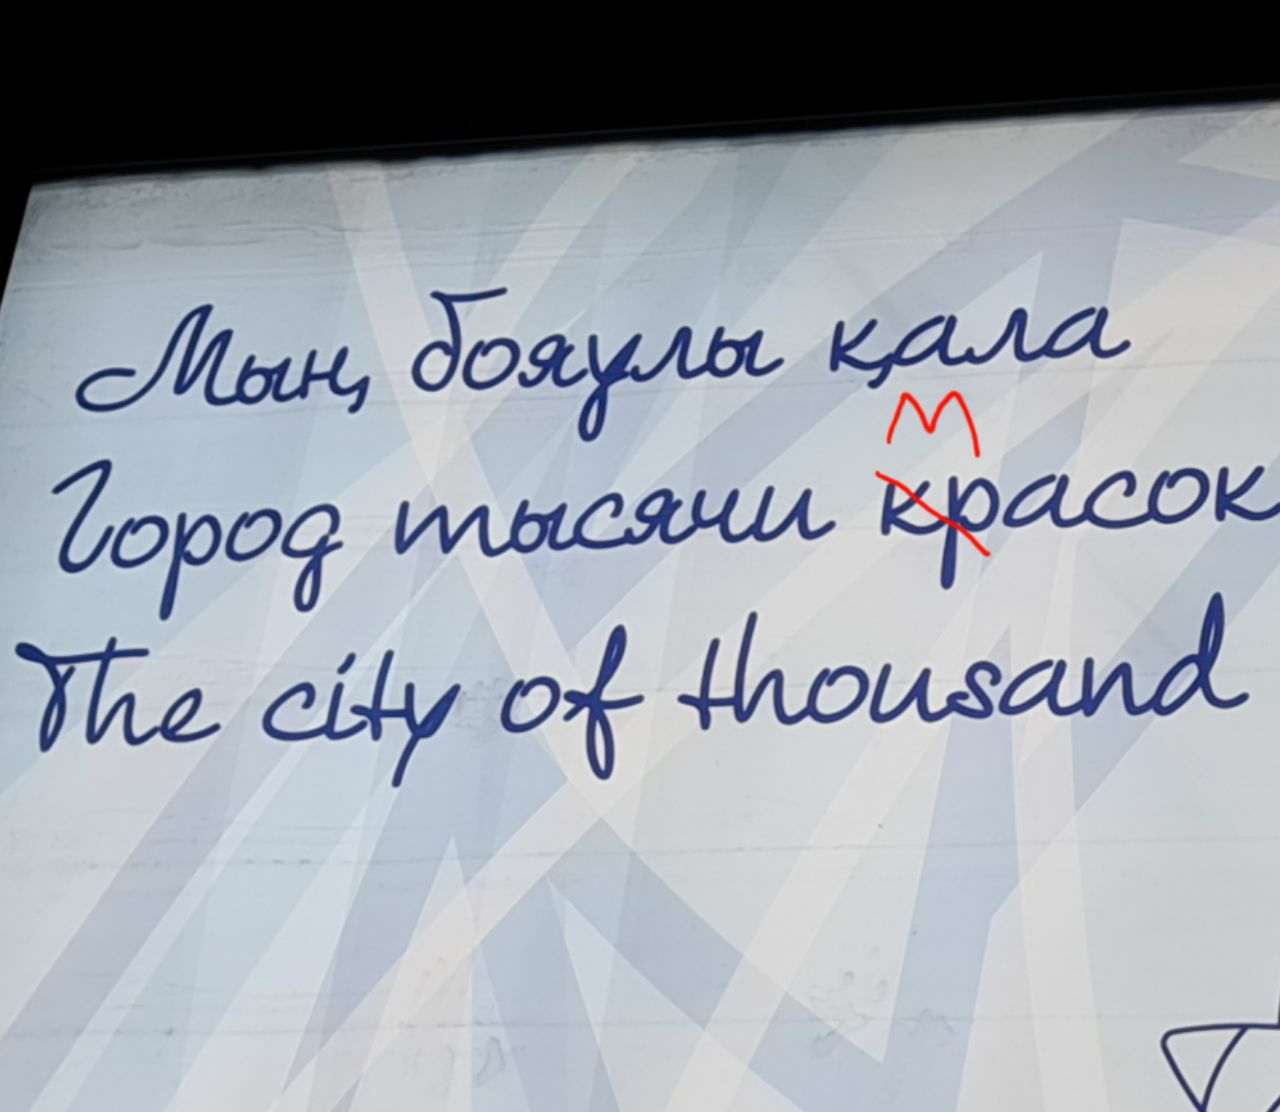 Мың бояулы қала
М
Город тысячи красок
The city of thousand